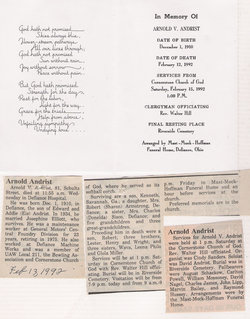 God hath not promised
Skies always blue,
Flower-strewn pathways
All our lives through;
God hath not promised
Sun without rain,
Joy without sorrow,
Peace without pain.
But God hath promised
Strength for the day,
Rest for the labor,
Light for the way,
Grace for the trials,
Help from above,
Unfailing sympathy
Undying love.
In Memory Of
ARNOLD V. ANDRIST
DATE OF BIRTH
December 1, 1910
DATE OF DEATH
February 12, 1992
SERVICES FROM
Cornerstone Church of God
Saturday, February 15, 1992
1:00 P.M.
CLERGYMAN OFFICIATING
Rev. Walter Hill
FINAL RESTING PLACE
Riverside Cemetery
Arrangements by Mast-Mock-Hoffman
Funeral Home, Defiance, Ohio
Arnold Andrist
Arnold V. Andrist, 81, Schultz
Street, died at 11:55 a.m. Wed-
nesday in Defiance Hospital.
He was born Dec. 1, 1910, in
Defiance, the son of Edward and
Addie (Ex) Andrist. In 1934, he
married Josephine Elliott, who
survives. He was a maintenance
worker at General Motors' Cen-
tral Foundry Division for 23
years, retiring in 1975. He also
worked at Defiance Machine
Works and was a member of
UAW Local 211, the Boating
Association and Cornerstone Church
of God, where he served as its
first custodian.
Surviving are a son, Kenneth,
Savannah, Ga.; a daughter, Mrs.
Robert (Shirley) Armstrong, De-
fiance; a sister, Mrs. Charles
Defiance; and
five grandchildren and three
great-grandchildren.
Preceding him in death were a
son, Robert; three brothers,
Lester, Henry and Wright; and
three sisters, Wava, Leona Plale
and Viola Miller.
Services will be at 1 p.m. Sat-
urday in Cornerstone Church of
God with Rev. Walter Hill
officiating. Burial will be in Riverside
Cemetery. Visitation will be from
7-9 p.m. today and from 9 a.m. to
p.m. Friday in Mast-Mock-
Hoffman Funeral Home and an
hour before services in the
church.
Preferred memorials are to the
church.
Arnold Andrist
Services for Arnold V. Andrist
were held at 1 p.m. Saturday at
the Cornerstone Church of God,
Rev. Walter Hill officiating. Or-
ganist was Cindy Sanders. Soloist
was David Andrist. Burial was in
Riverside Cemetery. Pallbearers
were
Powell, William Mansoney, Dale
Nagel, Charles James, John Lipp,
Marvin Bailey, and Raymond
Hussey. Arrangements were by
the Mast-Mock-Hoffman Funeral
Home.
Feb 13, 1992